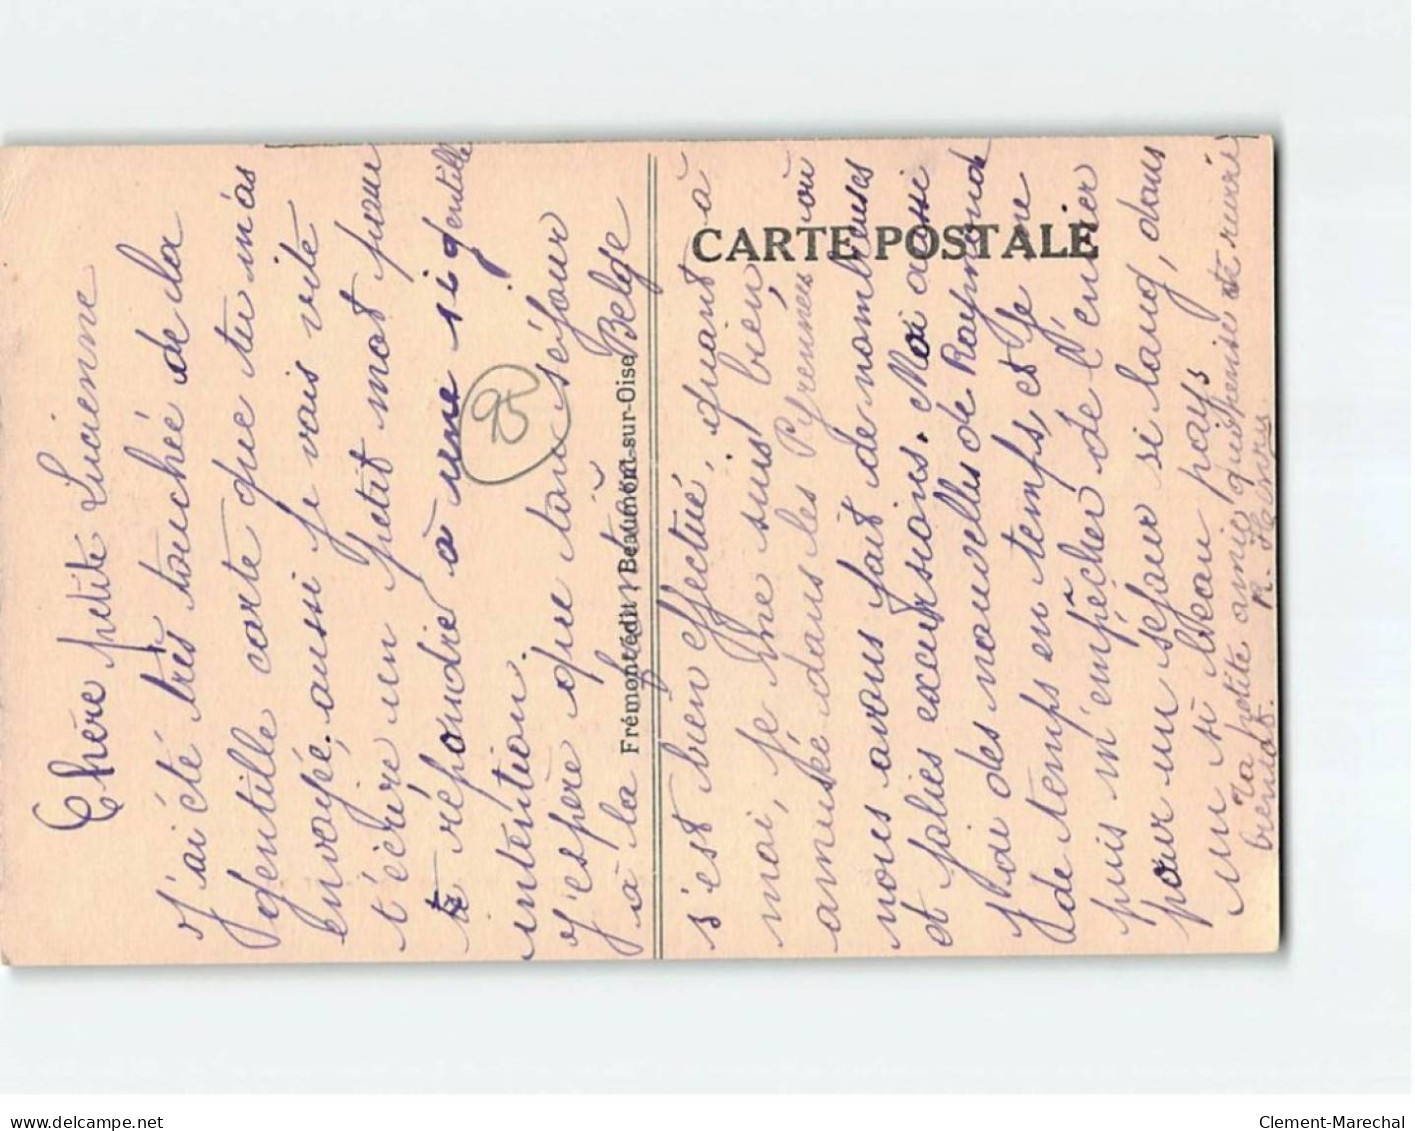 Chère petite Lucienne
J'ai été très touchée de la
gentille carte que tu m'as
envoyée, aussi je vais vite
t'écrire un petit mot pour
te répondre à une si gentille
intention.
J'espère que ton séjour
à la Belge
s'est bien effectué, quant à
moi, je me suis bien
amusée dans les Pyrennées où
nous avons fait de nombreuses
et jolies excursions. Moi aussi
j'ai des nouvelles de Raymonde
de temps en temps, et je ne
puis m'empêcher de l'envier
pour un séjour si long, dans
un si beau pays
Ta petite amie qui pense te revoir
bientôt.
R. Henry
95
CARTE POSTALE
Frémont édit, Beaumont-sur-Oise
delcampe.net
Clement-Marechal